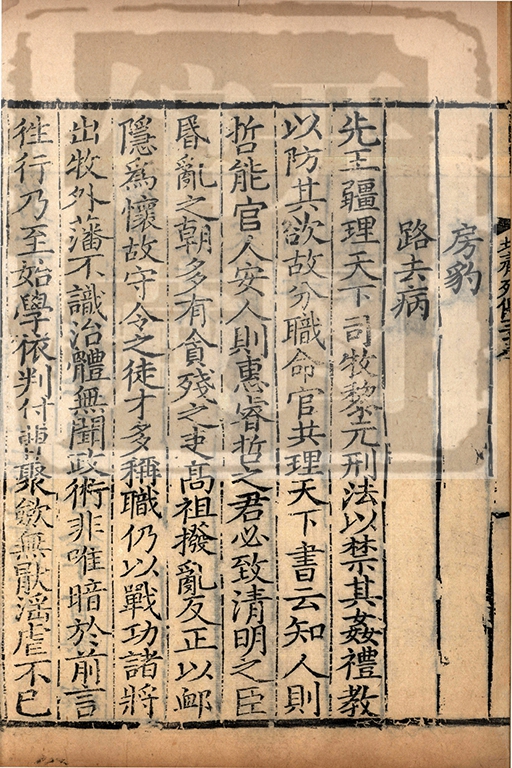 房豹
路去病
先王疆理天下司牧黎元刑法以禁其姦禮教
以防其欲故分職命官共理天下書云知人則
哲能官人安人則惠睿哲之君必致清明之臣
昬亂之朝多有貪殘之吏高祖撥亂反正以卹
隱爲懷故守令之徒才多稱職仍以戰功諸將
出牧外藩不識治體無聞政術非唯暗於前言
徃行乃至始學依判付曹聚斂無猒淫虐不已